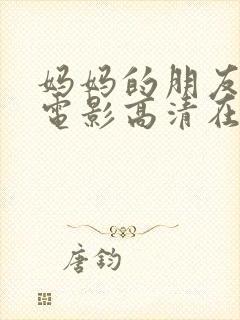 妈妈的朋友
電影高清在
唐钧